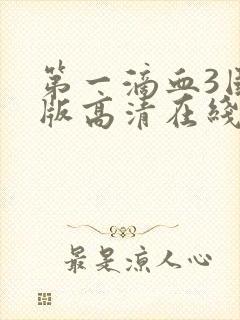 第一滴血3国
版高清在线
最是凉人心